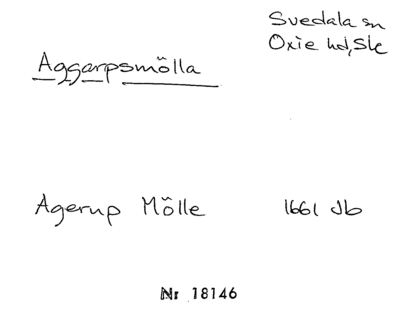 Svedala sn
Oxie hd, Sk
Aggarpsmölla
Agerup Mölle 1661 Jb
Nr 18146